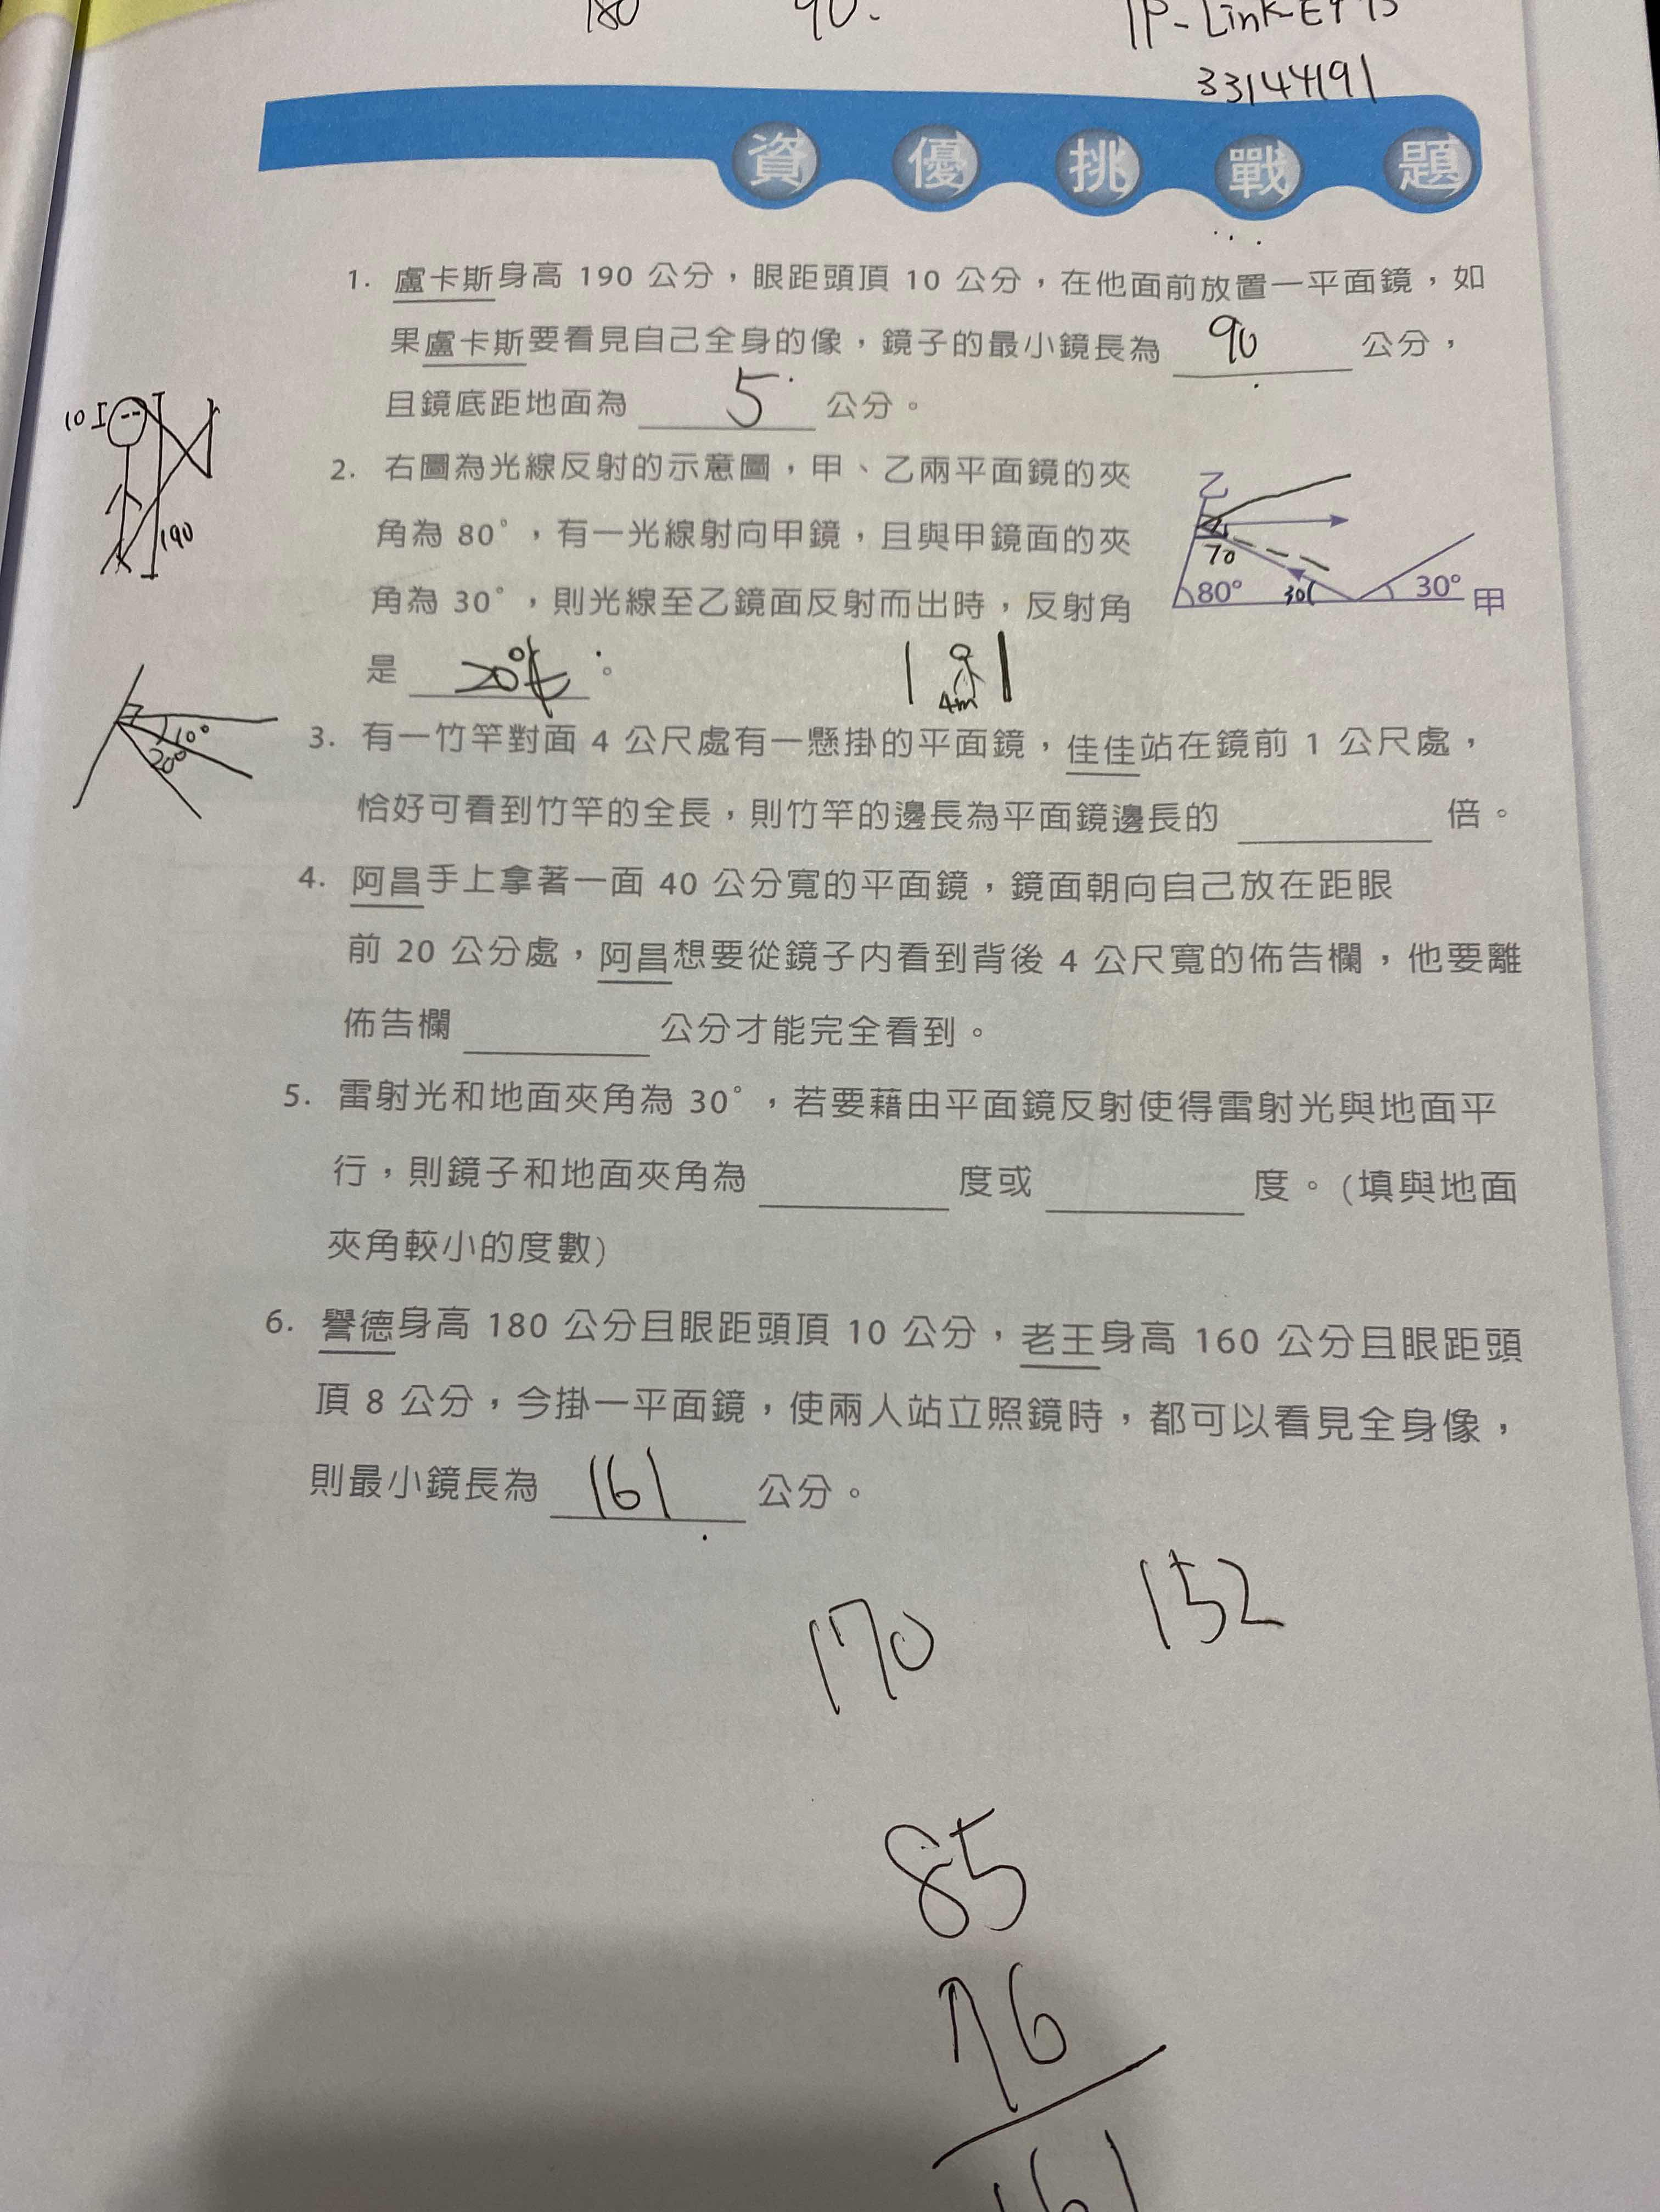 180 90.
33144191
資優挑戰題
1. 盧卡斯身高 190 公分，眼距頭頂 10 公分，在他面前放置一平面鏡，如
果盧卡斯要看見自己全身的像，鏡子的最小鏡長為 90 公分，
且鏡底距地面為 5 公分。
10
190
2. 右圖為光線反射的示意圖，甲、乙兩平面鏡的夾
角為 80°，有一光線射向甲鏡，且與甲鏡面的夾
角為 30°，則光線至乙鏡面反射而出時，反射角
是 20° 。
乙
70
80° 30 30° 甲
4m
3. 有一竹竿對面 4 公尺處有一懸掛的平面鏡，佳佳站在鏡前 1 公尺處，
恰好可看到竹竿的全長，則竹竿的邊長為平面鏡邊長的 倍。
4. 阿昌手上拿著一面 40 公分寬的平面鏡，鏡面朝向自己放在距眼
前 20 公分處，阿昌想要從鏡子內看到背後 4 公尺寬的佈告欄，他要離
佈告欄 公分才能完全看到。
5. 雷射光和地面夾角為 30°，若要藉由平面鏡反射使得雷射光與地面平
行，則鏡子和地面夾角為 度或 度。(填與地面
夾角較小的度數)
6. 譽德身高 180 公分且眼距頭頂 10 公分，老王身高 160 公分且眼距頭
頂 8 公分，今掛一平面鏡，使兩人站立照鏡時，都可以看見全身像，
則最小鏡長為 161 公分。
170 152
85
76
161